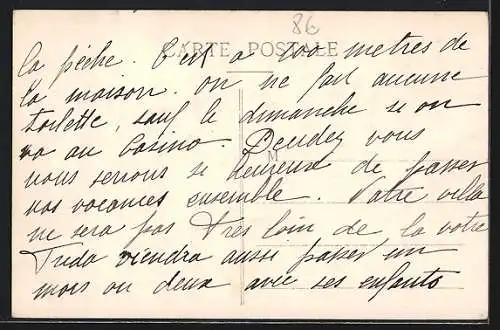 86
CARTE POSTALE
la pêche. C'est a 200 metres de
la maison. on ne fait aucune
toilette, sauf le dimanche si on
va au Casino. Pendez vous
M
nous serions si heureux de passer
nos vacances ensemble. Votre villa
ne sera pas Tres loin de la votre
Tuda viendra aussi passer un
mois ou deux avec ses enfants